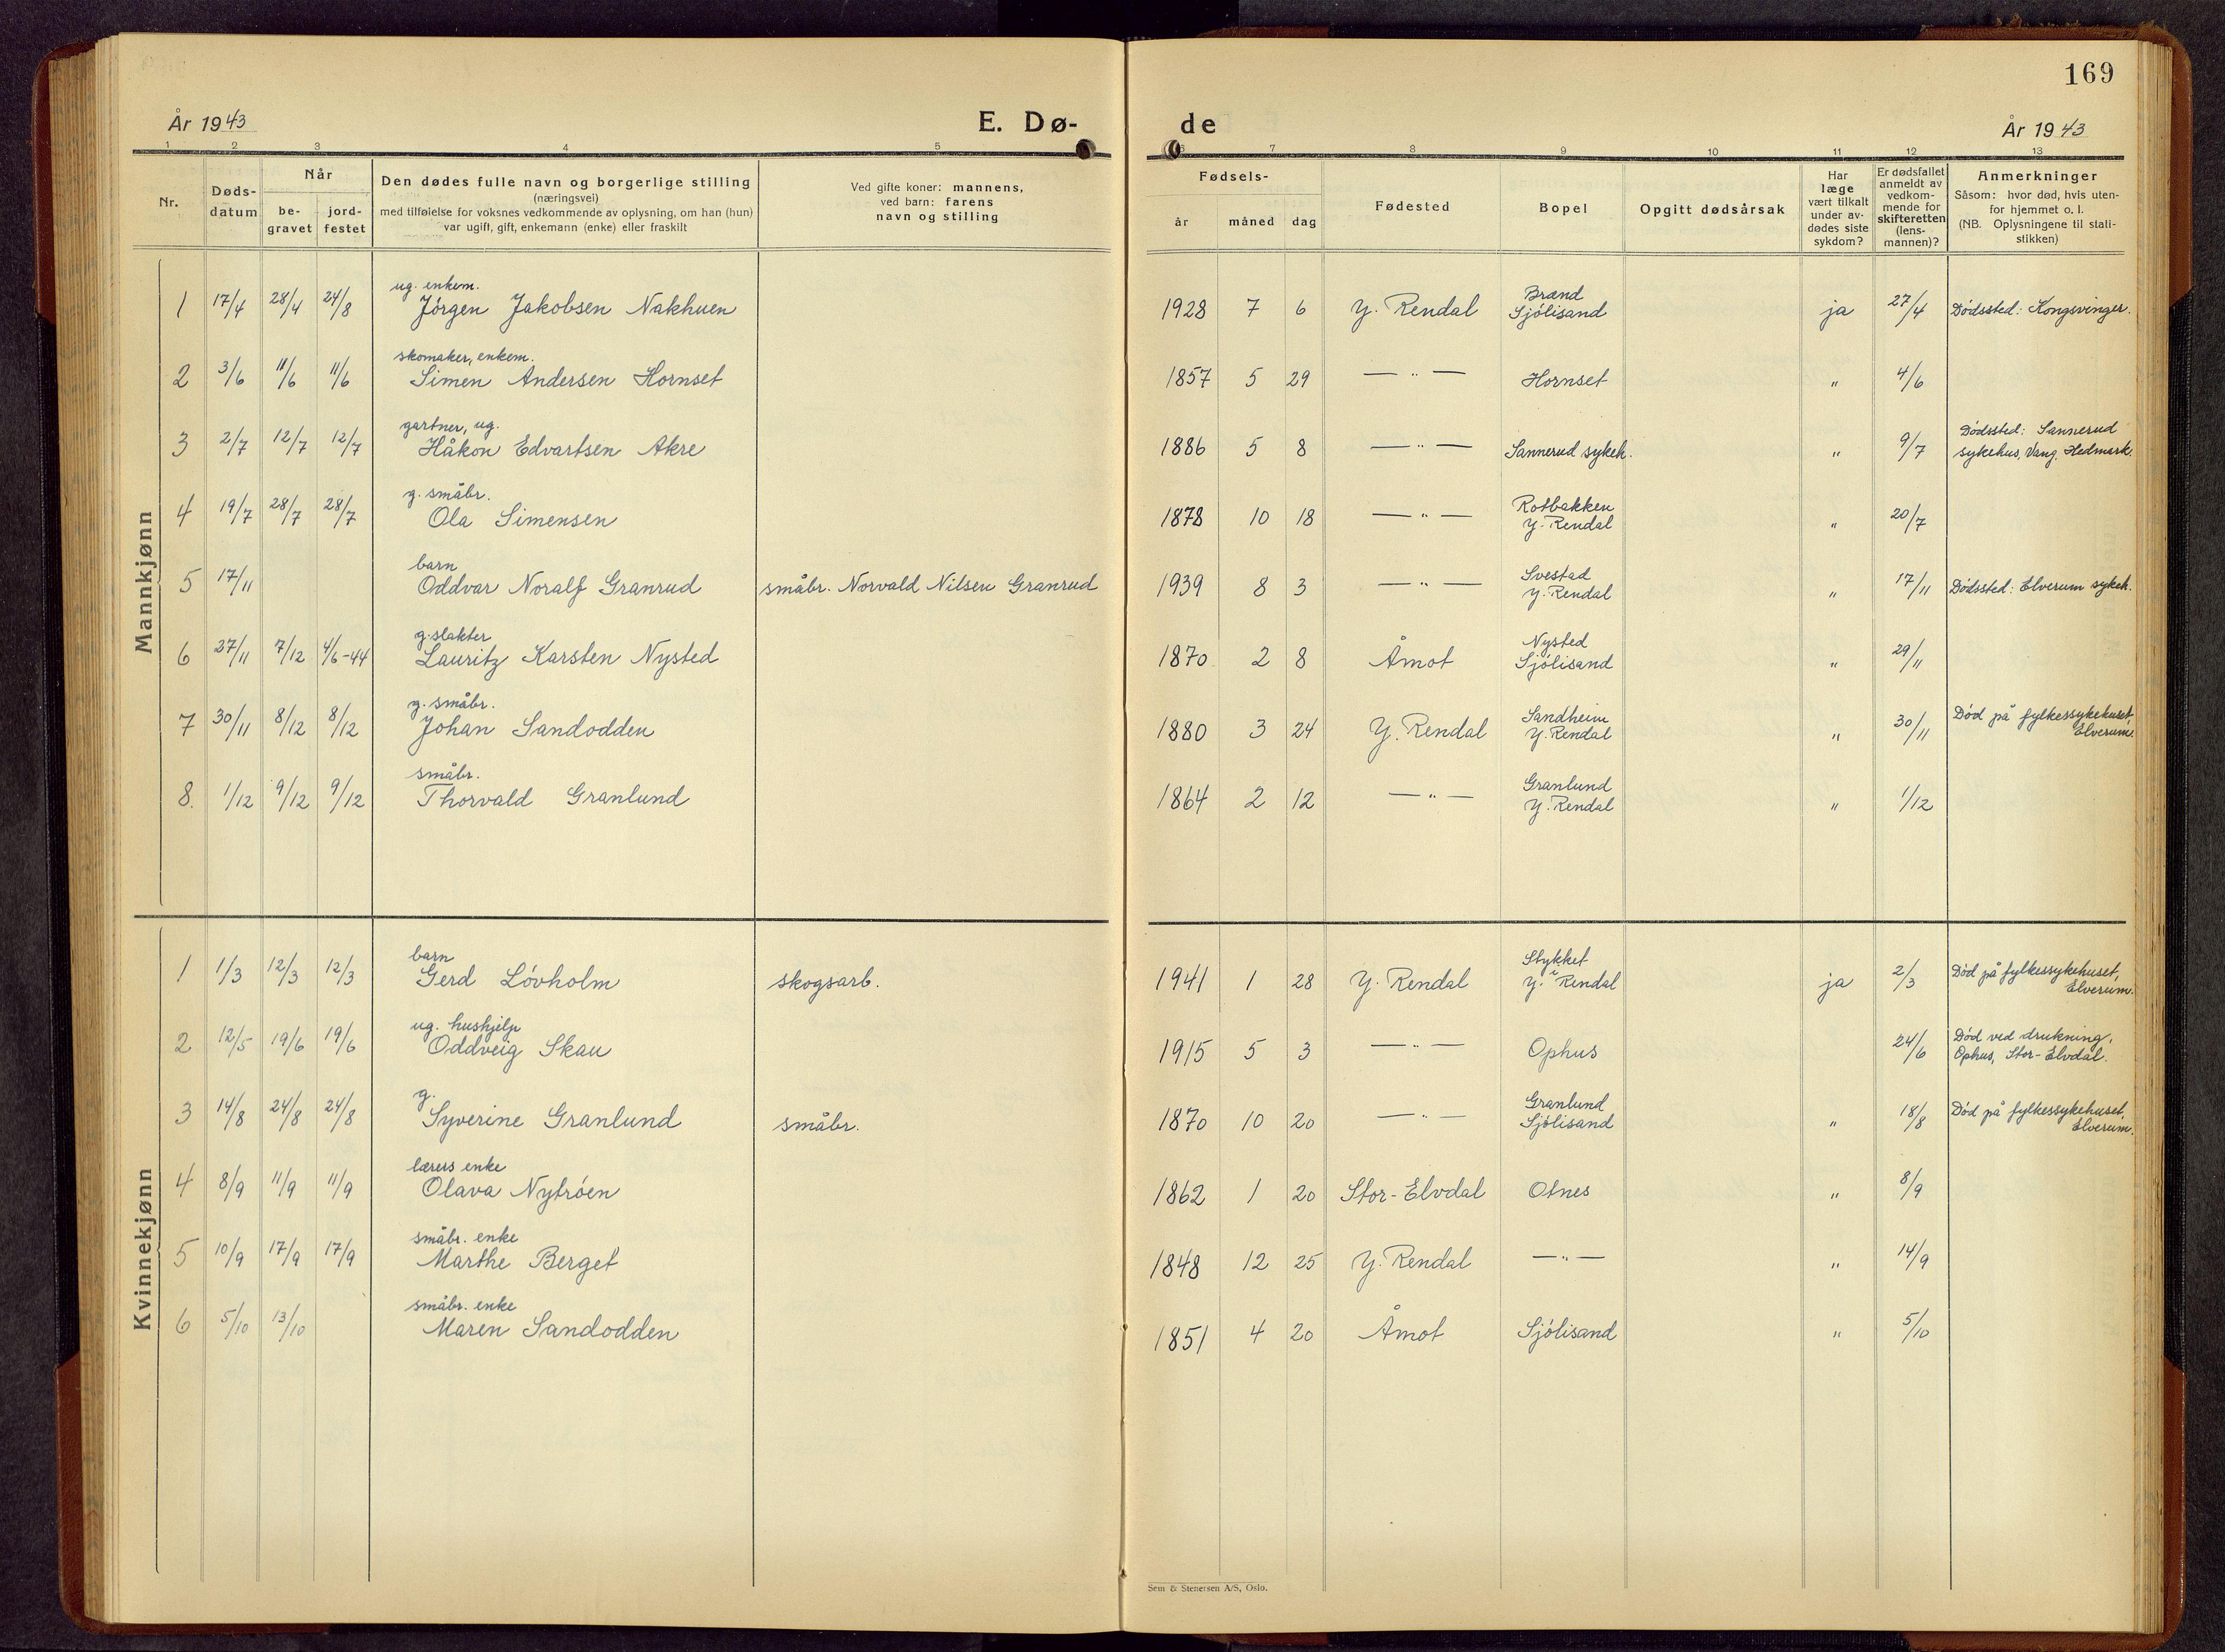 169
År 1943
E. Dø-
de
År 1943
1 2 3 4 5 6 7 8 9 10 11 12 13
Nr.
Døds-
datum
Når
be-
gravet
jord-
festet
Den dødes fulle navn og borgerlige stilling
(næringsvei)
med tilføielse for voksnes vedkommende av oplysning, om han (hun)
var ugift, gift, enkemann (enke) eller fraskilt
Ved gifte koner: mannens,
ved barn: farens
navn og stilling
Fødsels-
år måned dag
Fødested
Bopel
Opgitt dødsårsak
Har
læge
vært tilkalt
under av-
dødes siste
sykdom?
Er dødsfallet
anmeldt av
vedkom-
mende for
skifteretten
(lens-
mannen)?
Anmerkninger
Såsom: hvor død, hvis uten-
for hjemmet o. l.
(NB. Oplysningene til stati-
stikken)
Mannkjønn
ug. enkem. Brænd
1 17/4 28/4 24/8 Jörgen Jakobsen Nakhuen 1928 7 6 Y. Rendal Sjölisand ja 27/4 Dödssted: Kongsvinger.
skomaker, enkem.
2 3/6 11/6 11/6 Simen Andersen Hornset 1857 5 29 — " — Hornset " 4/6
gartner, ug. Dödssted: Sannerud
3 2/7 12/7 12/7 Håkon Edvartsen Akre 1886 5 8 — " — Sannerud sykeh. " 9/7 sykehus, Vang, Hedmark.
g. småbr. Rotbakken
4 19/7 28/7 28/7 Ola Simensen 1878 10 18 — " — Y. Rendal " 20/7
barn Svestad
5 17/11 Oddvar Noralf Granrud småbr. Norvald Nilsen Granrud 1939 8 3 — " — Y. Rendal " 17/11 Dödssted: Elverum sykeh.
g. slakter Nysted
6 27/11 7/12 4/6-44 Lauritz Karsten Nysted 1870 2 8 Åmot Sjölisand " 29/11
g. småbr. Sandheim Död på fylkessykehuset,
7 30/11 8/12 8/12 Johan Sandodden 1880 3 24 Y. Rendal Y. Rendal " 30/11 Elverum.
småbr. Granlund
8. 1/12 9/12 9/12 Thorvald Granlund 1864 2 12 — " — Y. Rendal " 1/12
Kvinnekjønn
barn Stykket Död på fylkessykehuset,
1 1/3 12/3 12/3 Gerd Lövholm skogsarb. 1941 1 28 Y. Rendal i Y. Rendal ja 2/3 Elverum.
ug. hushjelp Död ved drukning,
2 12/5 19/6 19/6 Oddveig Skau 1915 5 3 — " — Ophus 24/6 Ophus, Stor-Elvdal.
g. Granlund Död på fylkessykehuset,
3 14/8 24/8 24/8 Syverine Granlund småbr. 1870 10 20 — " — Sjölisand " 18/8 Elverum.
lærers enke
4 8/9 11/9 11/9 Olava Nytröen 1862 1 20 Stor-Elvdal Otnes " 8/9
småbr. enke
5 10/9 17/9 17/9 Marthe Berget 1848 12 25 Y. Rendal — " — " 14/9
småbr. enke
6 5/10 13/10 Maren Sandodden 1851 4 20 Åmot Sjölisand " 5/10
Sem & Stenersen A/S, Oslo.